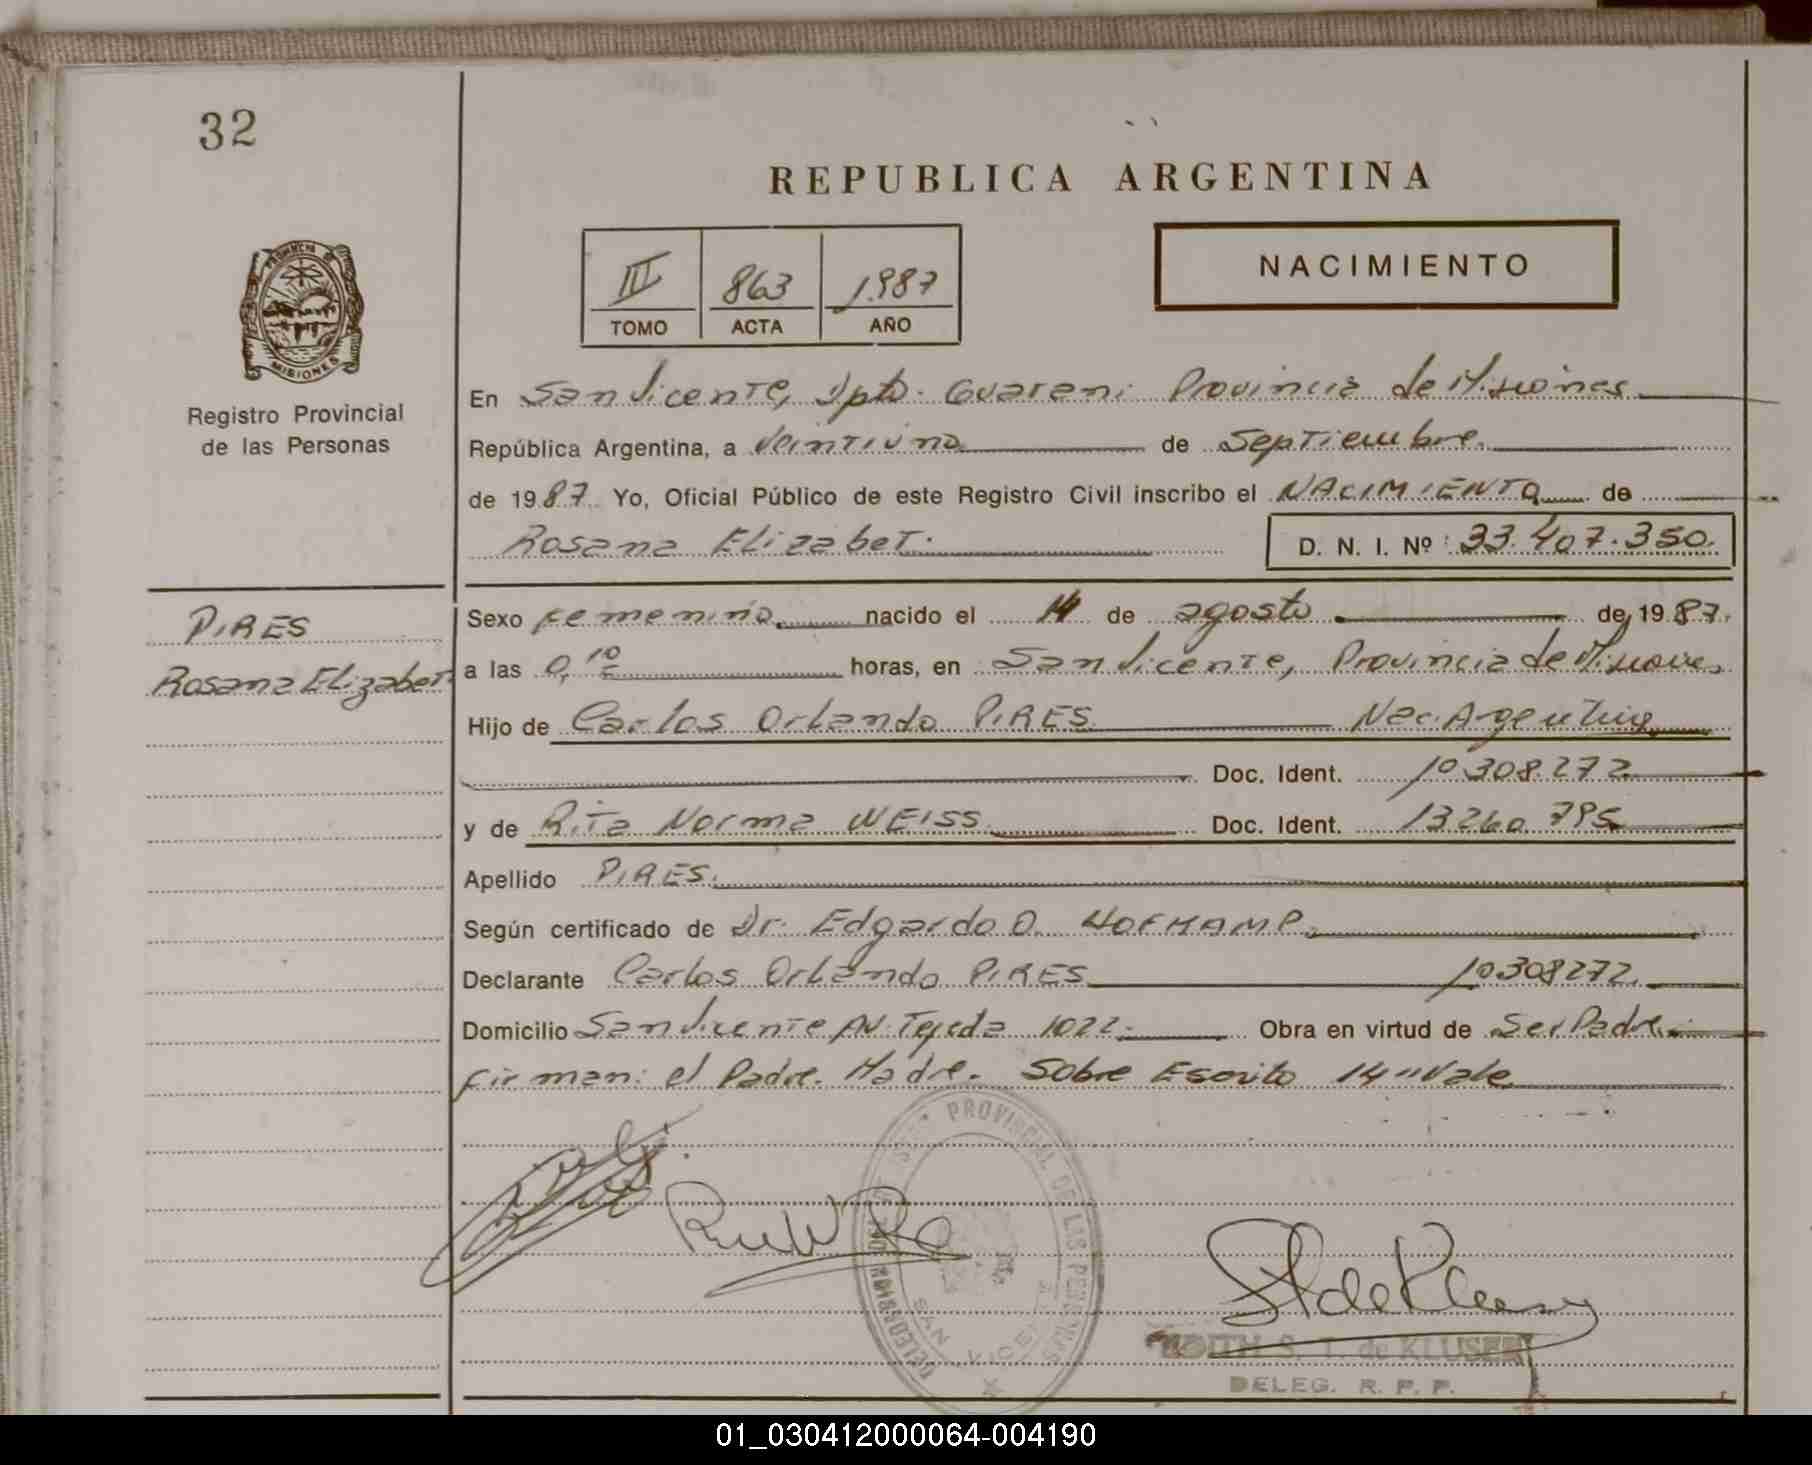 32
REPUBLICA ARGENTINA
PROVINCIA DE
MISIONES
Registro Provincial
de las Personas
III 863 1.987
TOMO ACTA AÑO
NACIMIENTO
En San Vicente, Dpto. Guarani Provincia de Misiones
República Argentina, a Veintiuno de Septiembre
de 1987. Yo, Oficial Público de este Registro Civil inscribo el NACIMIENTO de
Rosana Elizabet. D. N. I. Nº: 33.407.350.
PIRES
Rosana Elizabet.
Sexo femenino nacido el 14 de agosto de 1987.
a las 0,10 horas, en San Vicente, Provincia de Misiones
Hijo de Carlos Orlando PIRES Nac. Argentina
Doc. Ident. 10.308.272
y de Rita Norma WEISS Doc. Ident. 13260.795
Apellido PIRES.
Según certificado de Dr. Edgardo O. HOFKAMP.
Declarante Carlos Orlando PIRES 10.308272.
Domicilio San Vicente Av. Tejeda 1022. Obra en virtud de Ser Padre.
firman: el Padre. Madre. Sobre Escrito 14 "Vale
PROVINCIAL DE LAS
SAN VICENTE
EDITH S. T. de KLUSER
DELEG. R. P. P.
01_030412000064-004190